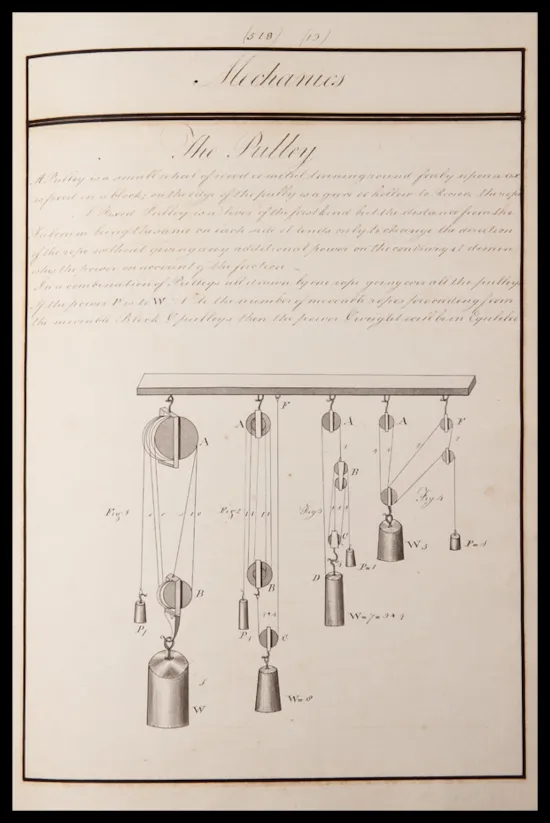 (518) (19)
Mechanics
The Pulley
A Pulley is a small wheel of wood or metal turning round freely upon an ax
is fixed in a block; on the edge of the pully is a hollow to the rope
A Fixed Pulley is a lever of the first kind but the distance from the
Fulcrum being the same on each side it tends only to change the direction
of the rope without giving any additional power on the contrary it dimin
ishes the power on account of the friction
In a combination of Pulleys all drawn by one rope going over all the pulleys
If the power P is to W as 1 to the number of moveable ropes proceeding from
the moveable Block & pulleys then the power & weight will be in Equilibr
F
A
A
A
A
F
B
Fig 2
Fig 3
Fig 4
C
B
B
D
P 1
P 1
W 3
C
W = 7 = 3 + 4
5
W
W = 8